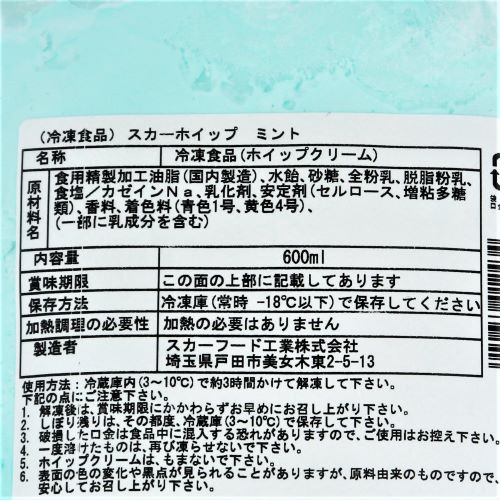 (冷凍食品) スカーホイップ ミント
名称 冷凍食品(ホイップクリーム)
原材料名 食用精製加工油脂(国内製造)、水飴、砂糖、全粉乳、脱脂粉乳、
食塩/カゼインNa、乳化剤、安定剤(セルロース、増粘多糖
類)、香料、着色料(青色1号、黄色4号)、
(一部に乳成分を含む)
内容量 600ml
賞味期限 この面の上部に記載してあります
保存方法 冷凍庫(常時 -18℃以下)で保存してください
加熱調理の必要性 加熱の必要はありません
製造者 スカーフード工業株式会社
埼玉県戸田市美女木東2-5-13
使用方法：冷蔵庫内(3~10℃)で約3時間かけて解凍して下さい。
下記の点にご注意下さい。
1. 解凍後は、賞味期限にかかわらずお早めにお召し上がり下さい。
2. しぼり残りは、その都度、冷蔵庫(3~10℃)で保存して下さい。
3. 破損した口金は食品中に混入する恐れがありますので、ご使用はお控え下さい。
4. 一度溶けたものは、再び凍らせないで下さい。
5. ホイップクリームは、もまないで下さい。
6. 表面の色の変化や黒点が見られることがありますが、原料由来のものですので、
安心してお召し上がり下さい。